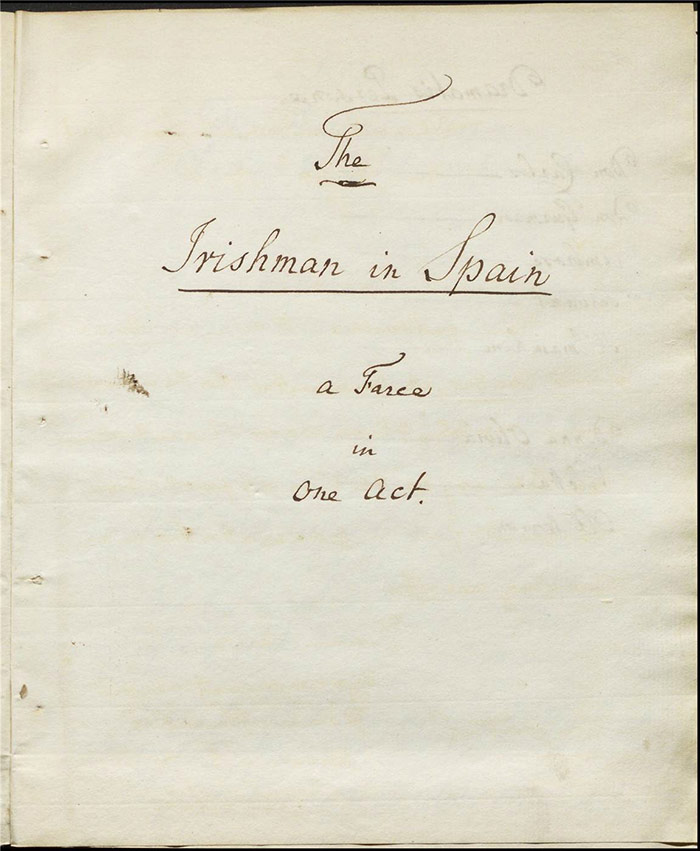 The
Irishman in Spain
a Farce
in
One Act.